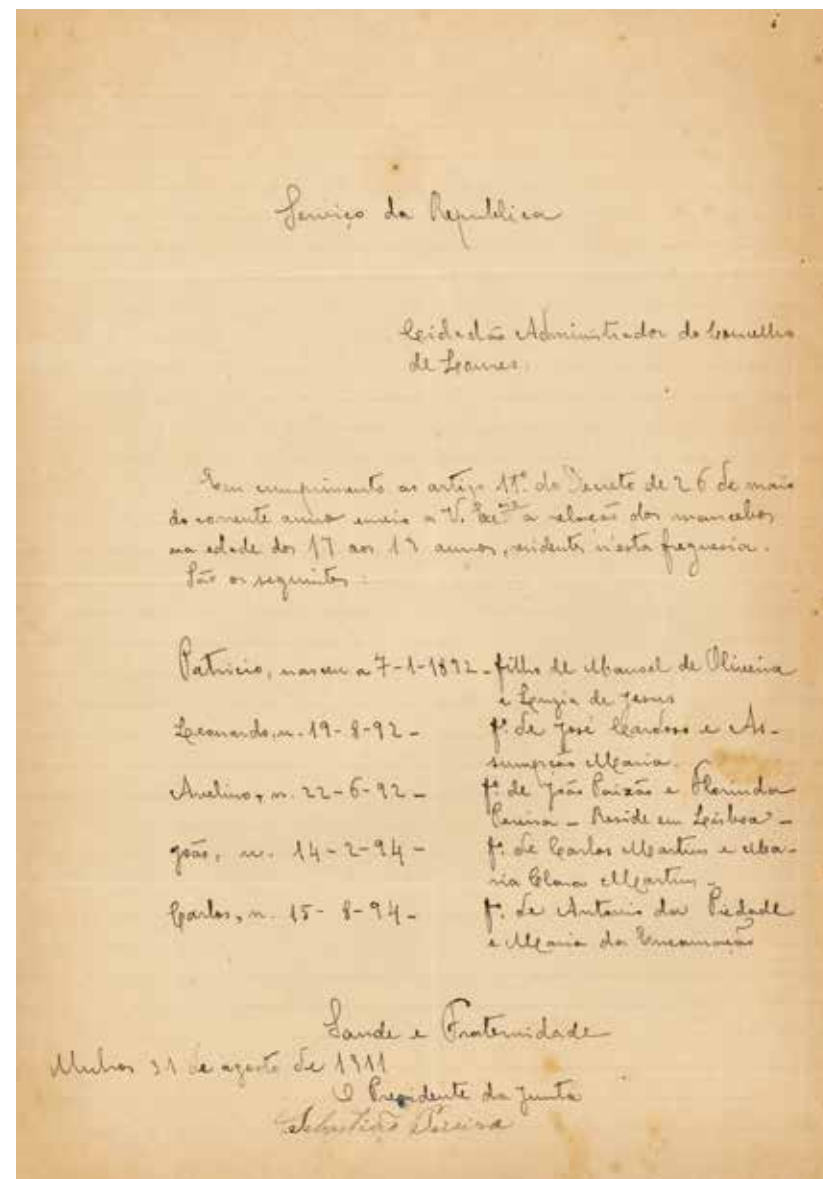 Serviço da Republica
Cidadão Administrador do Concelho
de Loures.
Em cumprimento ao artigo 11º do Decreto de 26 de maio
do corrente anno envio a V. Exᶜⁱᵃ a relação dos mancebos
na edade dos 17 aos 19 annos, residentes n'esta freguesia.
São os seguintes:
Patricio, nasceu a 7-1-1892 - filho de Manoel de Oliveira
e Luzia de Jesus
Leonardo, n. 19-8-92 - fº de José Cardoso e As-
sumpção Maria.
Avelino, n. 22-6-92 - fº de João Paixão e Florinda
Pereira - Reside em Lisboa -
João, n. 14-2-94 - fº de Carlos Martins e Ma-
ria Clara Martins -
Carlos, n. 15-8-94 - fº de Antonio da Piedade
e Maria da Encarnação
Saude e Fraternidade
31 de agosto de 1911
O Presidente da Junta
Sebastião Pereira